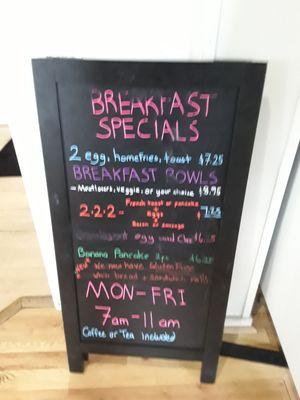 BREAKFAST
SPECIALS
2 egg, homefries, toast $7.25
BREAKFAST BOWLS
- Meatlovers, veggie, or your choice $8.95
2·2·2 = French toast or pancake
+
Eggs
+
Bacon or sausage
egg and Chee $6.25
Banana Pancake
NEW We now have Gluten Free
bread +
MON-FRI
7am-11am
Coffee or Tea Included